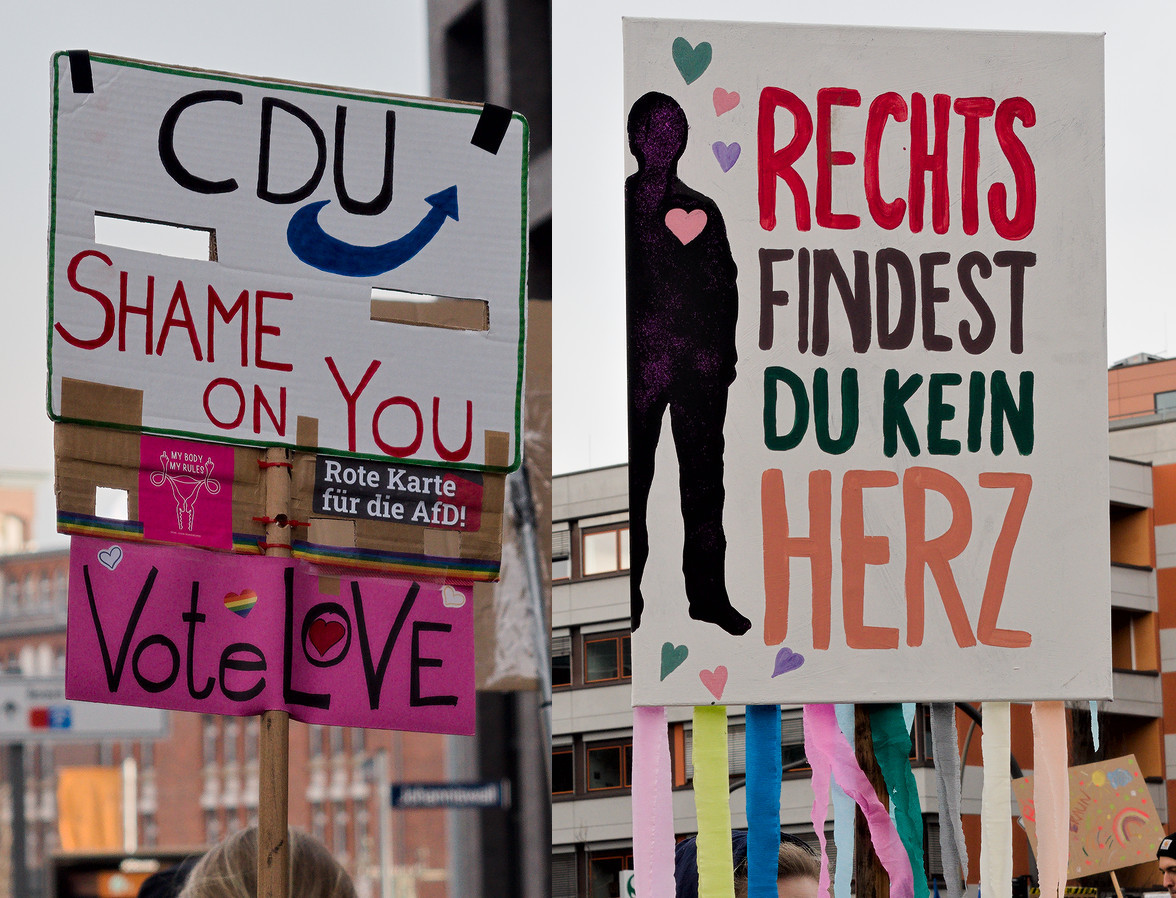 CDU
SHAME
ON YOU
MY BODY
MY RULES
Rote Karte
für die AfD!
Vote LOVE
Johanniswall
RECHTS
FINDEST
DU KEIN
HERZ